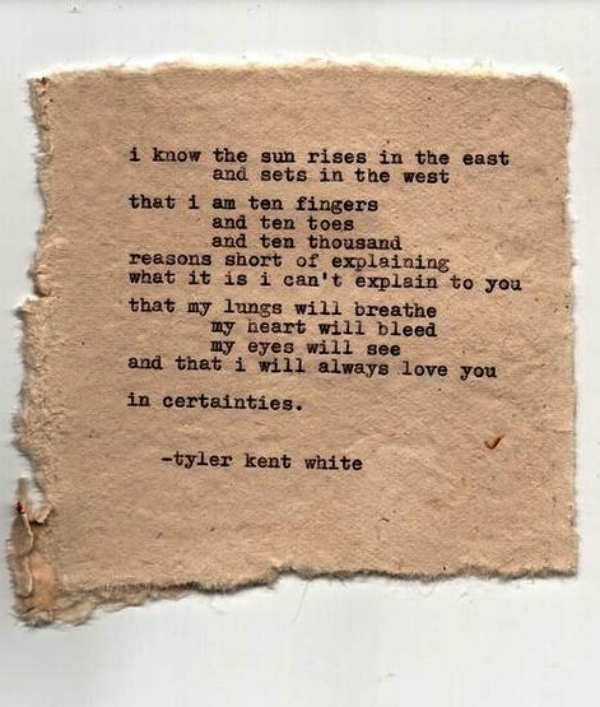 i know the sun rises in the east
and sets in the west
that i am ten fingers
and ten toes
and ten thousand
reasons short of explaining
what it is i can't explain to you
that my lungs will breathe
my heart will bleed
my eyes will see
and that i will always love you
in certainties.
-tyler kent white